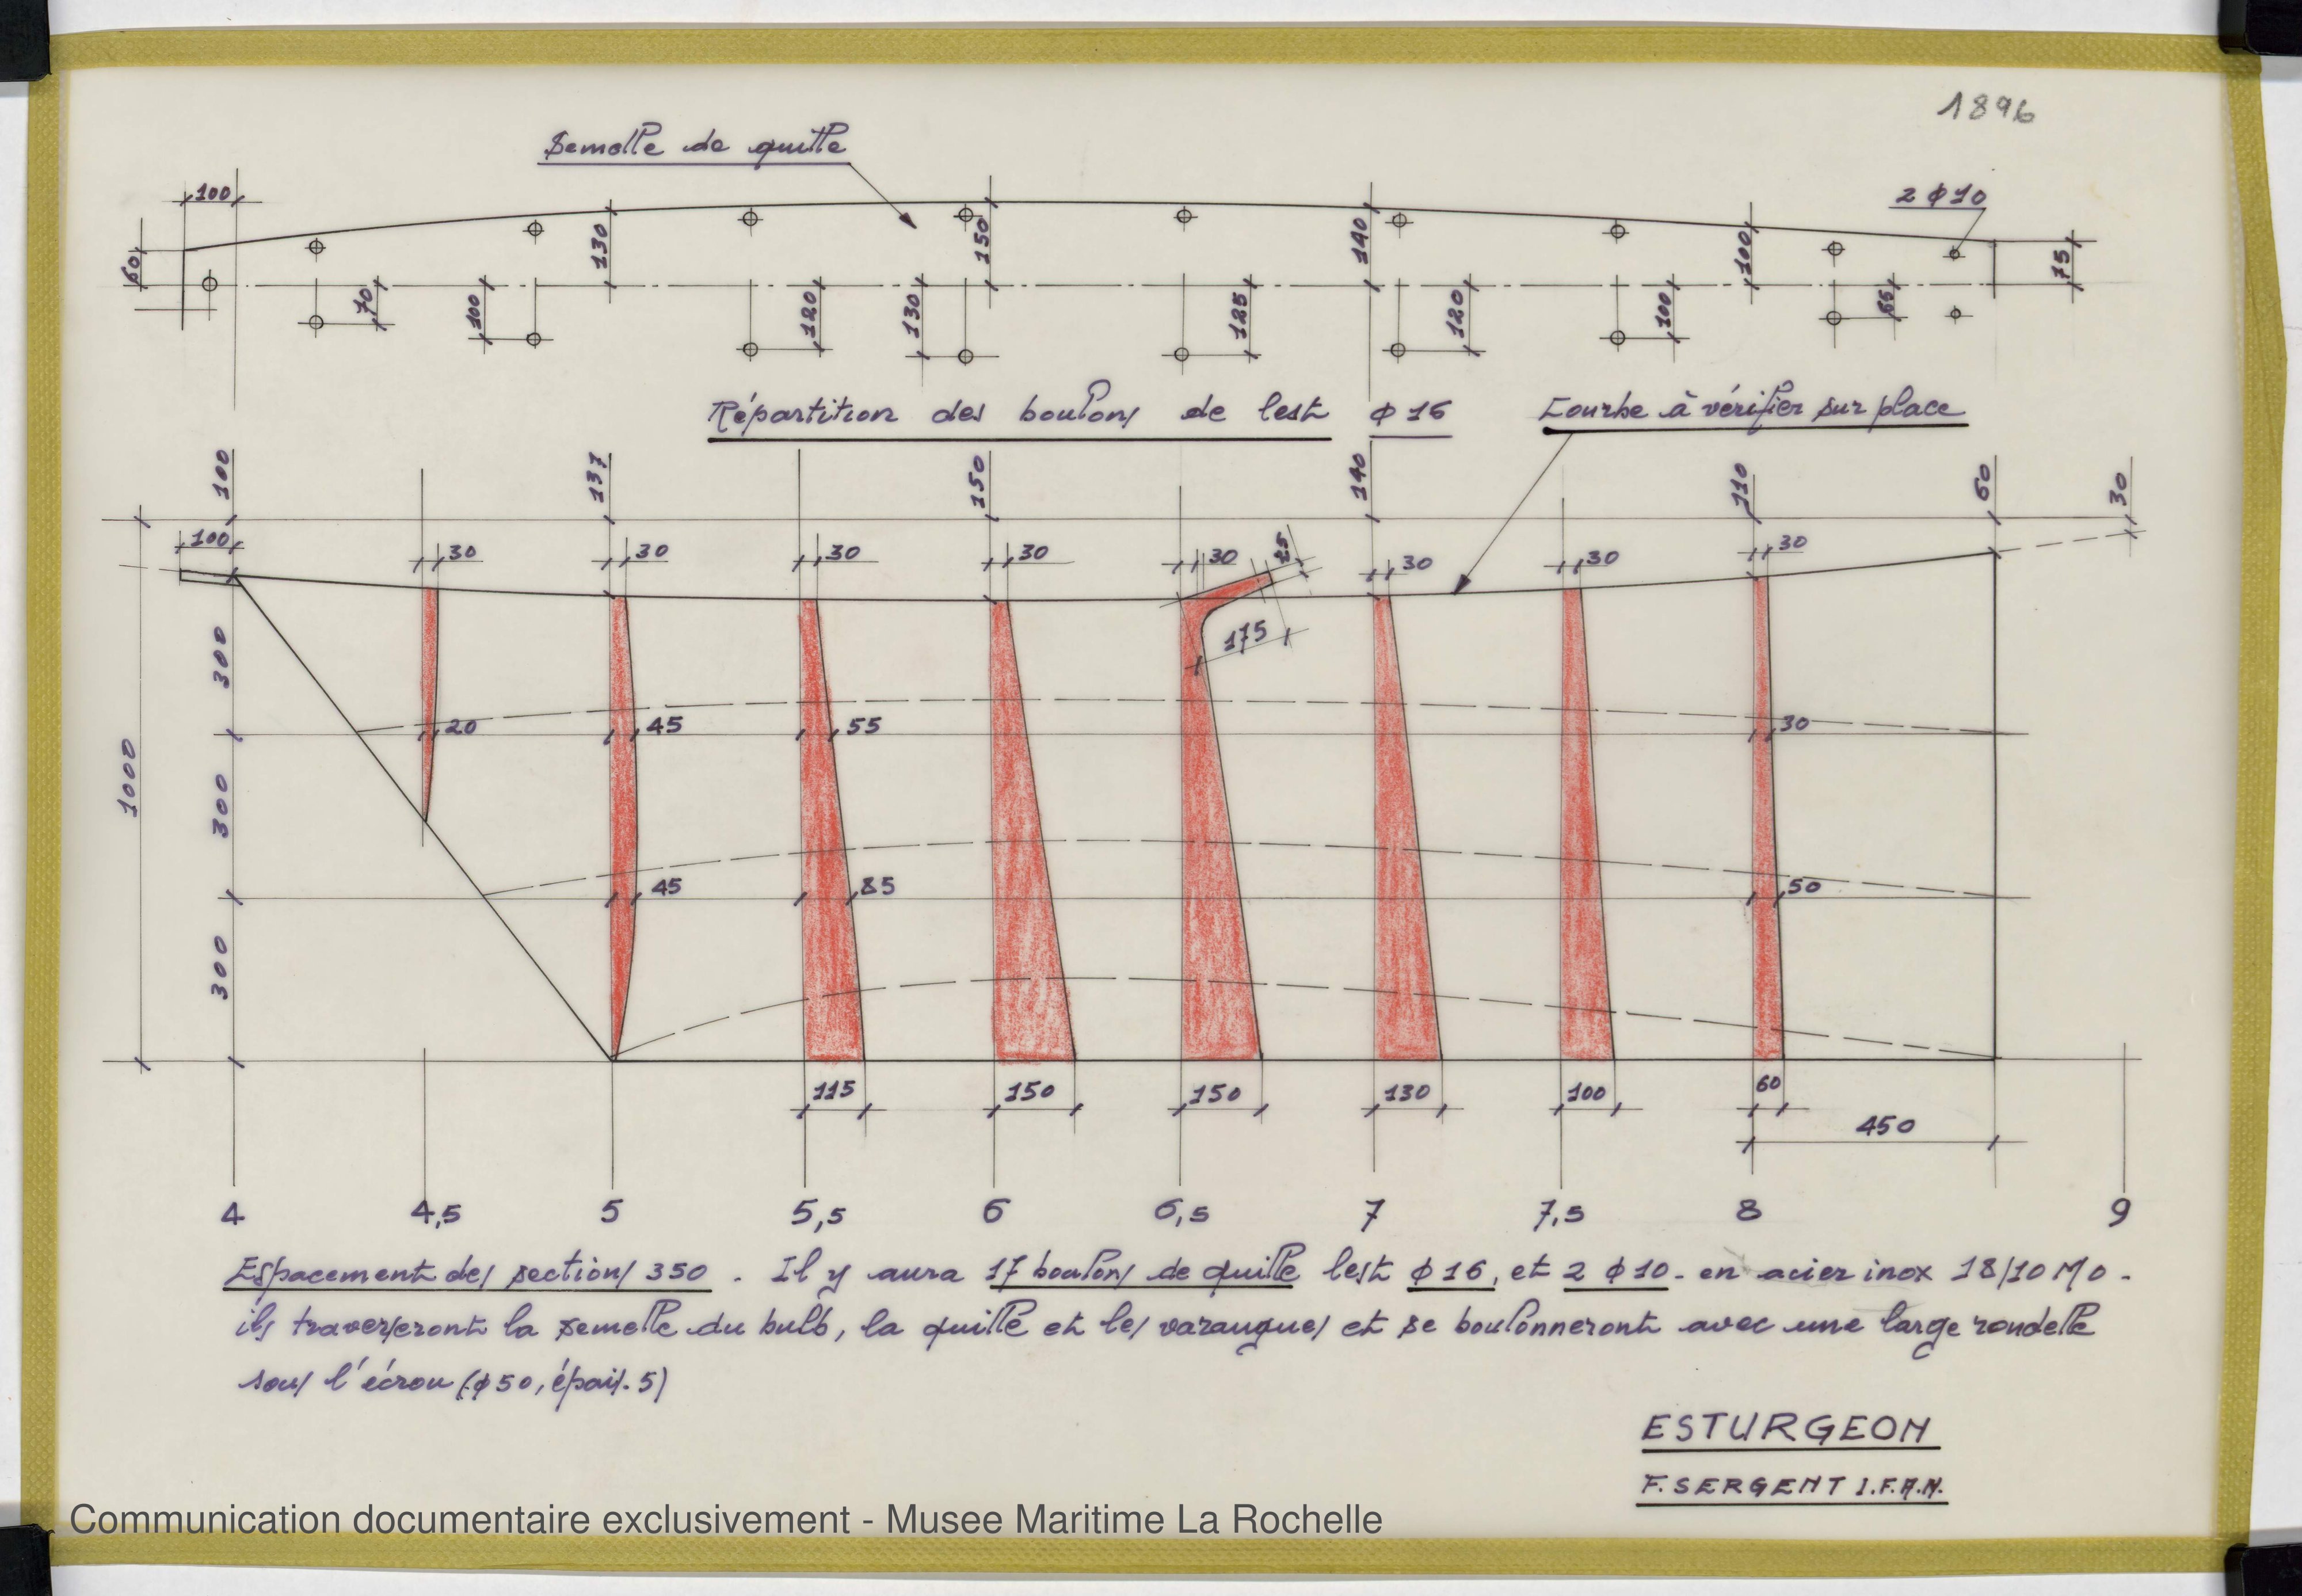 1896
Semelle de quille
100
2 ϕ 10
60
130
150
140
100
75
70
100
120
130
125
120
100
65
Répartition des boulons de lest ϕ 16
Courbe à vérifier sur place
100
137
150
140
110
60
30
100
30
30
30
30
30
25
30
30
30
175
300
20
45
55
30
1000
300
45
85
50
300
115
150
150
130
100
60
450
4
4,5
5
5,5
6
6,5
7
7,5
8
9
Espacement des sections 350. Il y aura 17 boulons de quille lest ϕ 16, et 2 ϕ 10 - en acier inox 18/10 Mo -
ils traverseront la semelle du bulb, la quille et les varangues et se boulonneront avec une large rondelle
sous l'écrou (ϕ 50, épais. 5)
ESTURGEON
F. SERGENT I.F.A.N.
Communication documentaire exclusivement - Musee Maritime La Rochelle